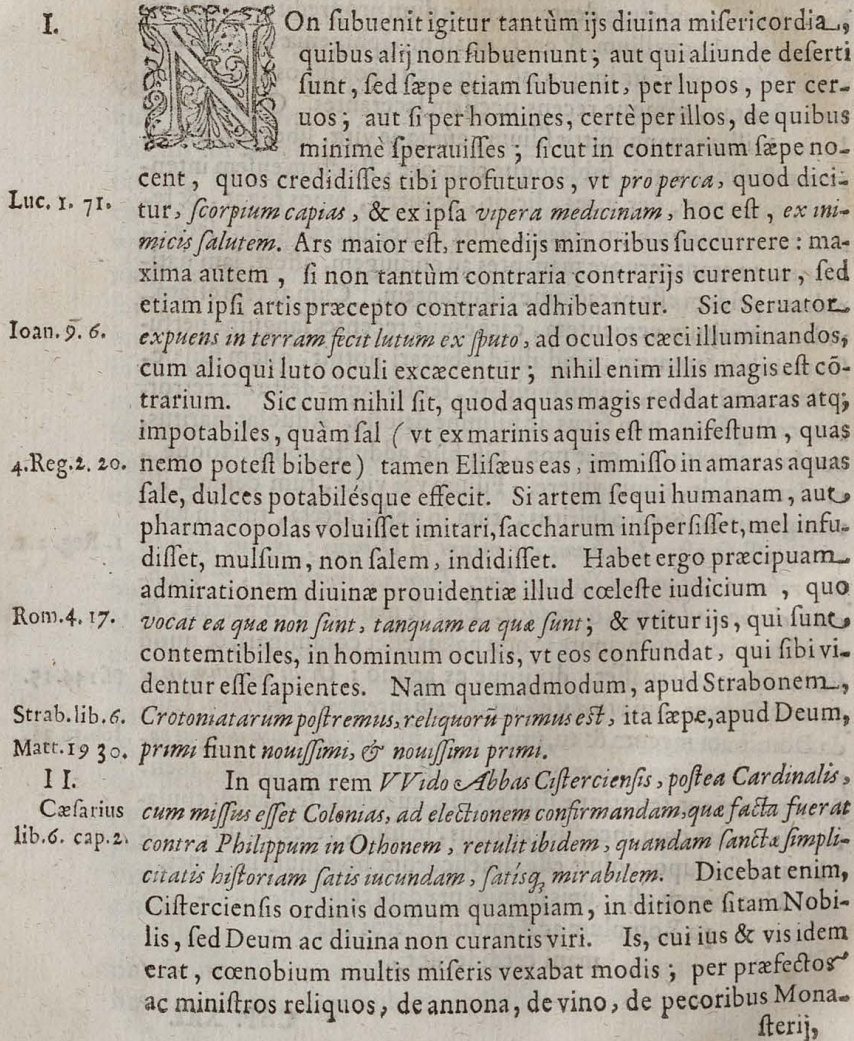 I. NOn ſubuenit igitur tantùm ijs diuina miſericordia,
quibus alij non ſubueniunt; aut qui aliunde deſerti
ſunt, ſed ſæpe etiam ſubuenit, per lupos, per cer-
uos; aut ſi per homines, certè per illos, de quibus
minimè ſperauiſſes; ſicut in contrarium ſæpe no-
cent, quos credidiſſes tibi profuturos, vt pro perca, quod dici-
Luc. 1. 71. tur, ſcorpium capias, & ex ipſa vipera medicinam, hoc eſt, ex ini-
micis ſalutem. Ars maior eſt, remedijs minoribus ſuccurrere: ma-
xima autem, ſi non tantùm contraria contrarijs curentur, ſed
etiam ipſi artis præcepto contraria adhibeantur. Sic Seruator
Ioan. 9. 6. expuens in terram fecit lutum ex ſputo, ad oculos cæci illuminandos,
cum alioqui luto oculi excæcentur; nihil enim illis magis eſt cō-
trarium. Sic cum nihil ſit, quod aquas magis reddat amaras atq;
impotabiles, quàm ſal (vt ex marinis aquis eſt manifeſtum, quas
4. Reg. 2. 20. nemo poteſt bibere) tamen Eliſæus eas, immiſſo in amaras aquas
ſale, dulces potabiléſque effecit. Si artem ſequi humanam, aut
pharmacopolas voluiſſet imitari, ſaccharum inſperſiſſet, mel infu-
diſſet, mulſum, non ſalem, indidiſſet. Habet ergo præcipuam
admirationem diuinæ prouidentiæ illud cœleſte iudicium, quo
Rom. 4. 17. vocat ea quæ non ſunt, tanquam ea quæ ſunt; & vtitur ijs, qui ſunt
contemtibiles, in hominum oculis, vt eos confundat, qui ſibi vi-
dentur eſſe ſapientes. Nam quemadmodum, apud Strabonem,
Strab. lib. 6. Crotoniatarum poſtremus, reliquorū primus eſt, ita ſæpe, apud Deum,
Matt. 19 30. primi fiunt nouiſſimi, & nouiſſimi primi.
II. In quam rem VVido Abbas Ciſtercienſis, poſtea Cardinalis,
Cæſarius cum miſſus eſſet Colonias, ad electionem confirmandam, quæ facta fuerat
lib. 6. cap. 2. contra Philippum in Othonem, retulit ibidem, quandam ſanctæ ſimpli-
citatis hiſtoriam ſatis iucundam, ſatíſq; mirabilem. Dicebat enim,
Ciſtercienſis ordinis domum quampiam, in ditione ſitam Nobi-
lis, ſed Deum ac diuina non curantis viri. Is, cui ius & vis idem
erat, cœnobium multis miſeris vexabat modis; per præfectos
ac miniſtros reliquos, de annona, de vino, de pecoribus Mona-
ſterij,